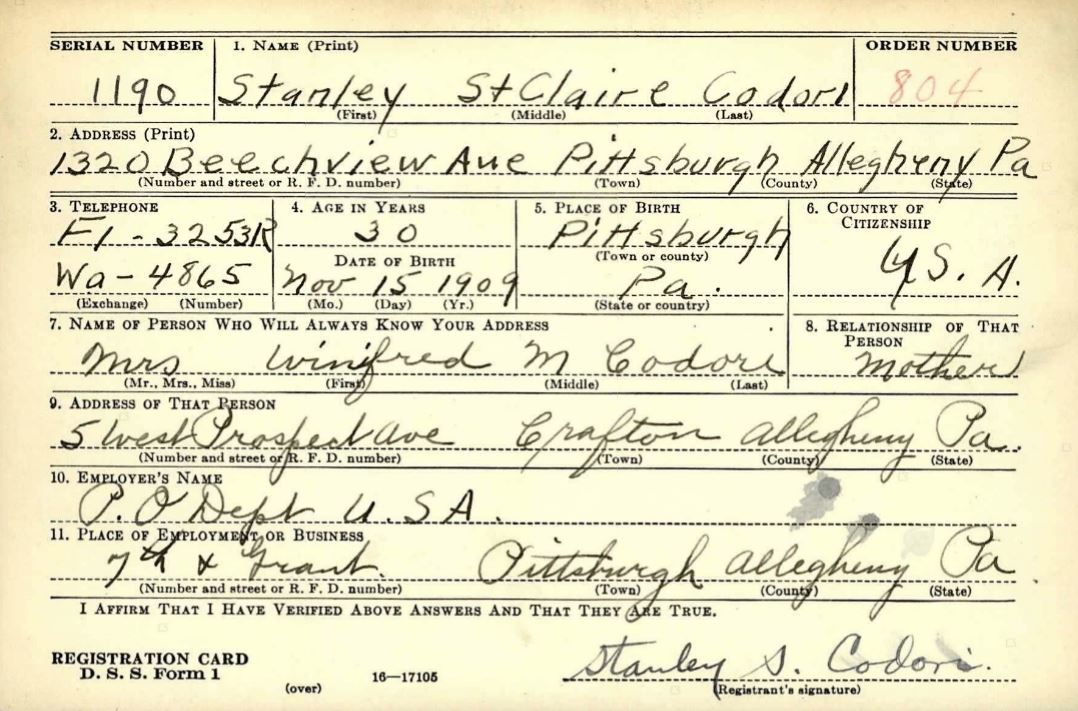 SERIAL NUMBER 1. NAME (Print) ORDER NUMBER
1190 Stanley StClaire Codori 804
(First) (Middle) (Last)
2. ADDRESS (Print)
1320 Beechview Ave Pittsburgh Allegheny Pa
(Number and street or R. F. D. number) (Town) (County) (State)
3. TELEPHONE 4. AGE IN YEARS 5. PLACE OF BIRTH 6. COUNTRY OF CITIZENSHIP
FI - 3253R 30 Pittsburgh U.S.A.
DATE OF BIRTH (Town or county)
Wa - 4865 Nov 15 1909 Pa.
(Exchange) (Number) (Mo.) (Day) (Yr.) (State or country)
7. NAME OF PERSON WHO WILL ALWAYS KNOW YOUR ADDRESS 8. RELATIONSHIP OF THAT PERSON
Mrs Winifred M Codori Mother
(Mr., Mrs., Miss) (First) (Middle) (Last)
9. ADDRESS OF THAT PERSON
5 West Prospect Ave Crafton Allegheny Pa.
(Number and street or R. F. D. number) (Town) (County) (State)
10. EMPLOYER'S NAME
P.O Dept U.S.A.
11. PLACE OF EMPLOYMENT OR BUSINESS
7th & Grant. Pittsburgh Allegheny Pa
(Number and street or R. F. D. number) (Town) (County) (State)
I AFFIRM THAT I HAVE VERIFIED ABOVE ANSWERS AND THAT THEY ARE TRUE.
REGISTRATION CARD
D. S. S. Form 1
(over) 16—17105
Stanley S. Codori.
(Registrant's signature)